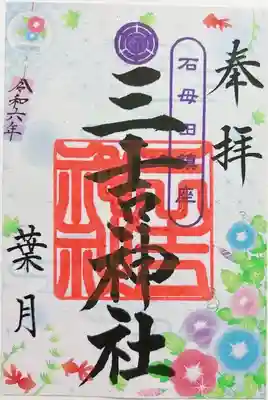 奉拝
石母田鎮座
三吉神社
令和六年
葉月